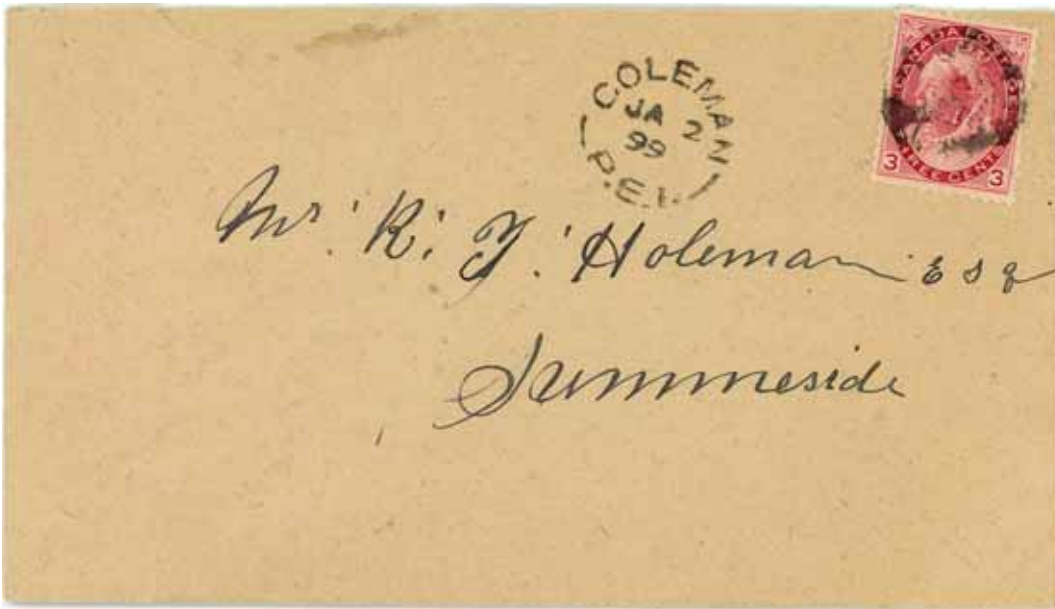 COLEMAN
JA 2
99
P.E.I.
CANADA POSTAGE
3 THREE CENTS 3
Mr. R. T. Holeman Esq
Summeside